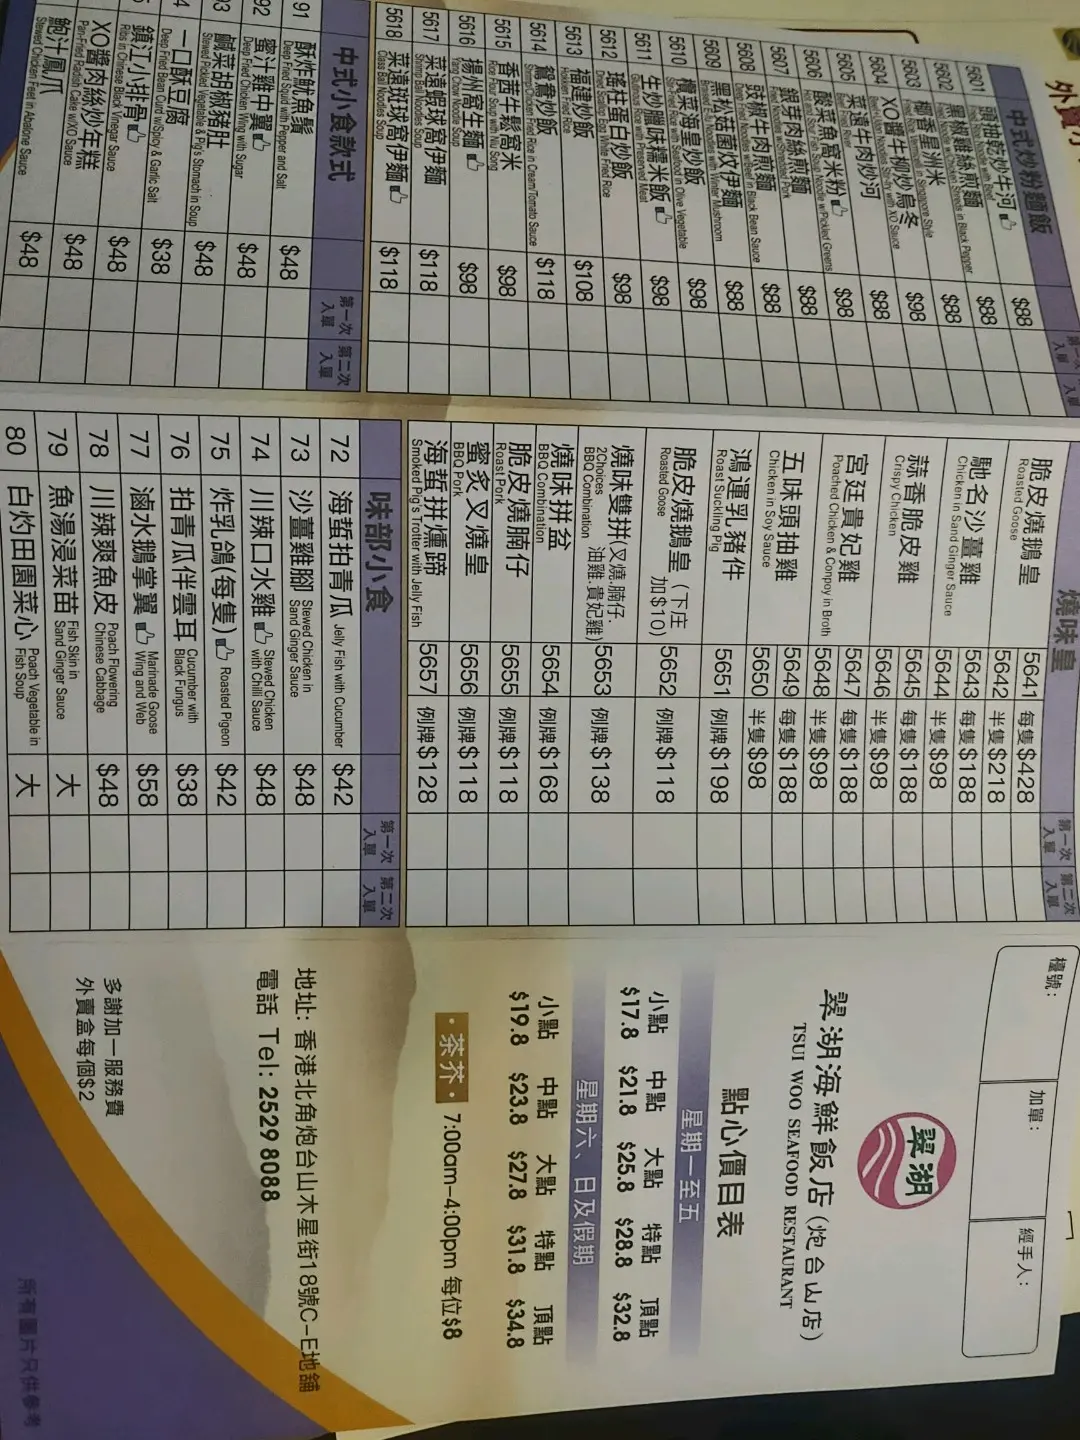 外賣
中式炒粉麵飯
第一次入單
5601 頭抽乾炒牛河 $88
5602 黑椒雞絲煎麵 $88
Fried Noodle w/Chicken Shreds in Black Pepper
5603 椰香星洲米 $88
5604 XO醬牛柳炒烏冬 $98
5605 菜遠牛肉炒河 $88
5606 酸菜魚窩米粉 $98
5607 銀芽肉絲煎麵 $88
5608 豉椒牛肉煎麵 $88
5609 黑松菇菌炆伊麵 $88
5610 欖菜海皇炒飯 $98
5611 生炒臘味糯米飯 $98
Glutinous Rice with Preserved Meat
5612 瑤柱蛋白炒飯 $98
5613 福建炒飯 $108
Hokkien Fried Rice
5614 鴛鴦炒飯 $118
5615 香茜牛鬆窩米 $98
5616 揚州窩生麵 $98
Yang Chow Noodle Soup
5617 菜遠蝦球窩伊麵 $118
Shrimp Ball Noodles Soup
5618 菜遠斑球窩伊麵 $118
中式小食款式
第一次入單 第二次入單
91 酥炸魷魚鬚 $48
Deep Fried Squid with Pepper and Salt
92 蜜汁雞中翼 $48
Deep Fried Chicken Wing with Sugar
鹹菜胡椒豬肚 $48
Stewed Pickled Vegetable & Pig's Stomach in Soup
一口酥豆腐 $38
Deep Fried Bean Curd w/Spicy & Garlic Salt
鎮江小排骨 $48
Ribs in Chinese Black Vinegar Sauce
XO醬肉絲炒年糕 $48
Pan-Fried Radish Cake w/XO Sauce
鮑汁鳳爪 $48
Stewed Chicken Feet in Abalone Sauce
燒味皇
第一次入單 第二次入單
脆皮燒鵝皇
Roasted Goose
5641 每隻$428
5642 半隻$218
馳名沙薑雞
Chicken in Sand Ginger Sauce
5643 每隻$188
5644 半隻$98
蒜香脆皮雞
Crispy Chicken
5645 每隻$188
5646 半隻$98
宮廷貴妃雞
Poached Chicken & Conpoy in Broth
5647 每隻$188
5648 半隻$98
五味頭抽雞
Chicken in Soy Sauce
5649 每隻$188
5650 半隻$98
鴻運乳豬件
Roast Suckling Pig
5651 例牌$198
脆皮燒鵝皇(下庄加$10)
Roasted Goose
5652 例牌$118
燒味雙拼(叉燒.腩仔.油雞.貴妃雞)
2Choices
BBQ Combination
5653 例牌$138
燒味拼盆
BBQ Combination
5654 例牌$168
脆皮燒腩仔
Roast Pork
5655 例牌$118
蜜炙叉燒皇
BBQ Pork
5656 例牌$118
海蜇拼燻蹄
Smoked Pig's Trotter with Jelly Fish
5657 例牌$128
味部小食
第一次入單 第二次入單
72 海蜇拍青瓜 Jelly Fish with Cucumber $42
73 沙薑雞腳 Stewed Chicken in Sand Ginger Sauce $48
74 川辣口水雞 Stewed Chicken with Chilli Sauce $48
75 炸乳鴿(每隻) Roasted Pigeon $42
76 拍青瓜伴雲耳 Cucumber with Black Fungus $38
77 滷水鵝掌翼 Marinade Goose Wing and Web $58
78 川辣爽魚皮 Poach Flowering Chinese Cabbage $48
79 魚湯浸菜苗 Fish Skin in Sand Ginger Sauce 大
80 白灼田園菜心 Poach Vegetable in Fish Soup 大
檯號:
加單:
經手人:
翠湖
翠湖海鮮飯店(炮台山店)
TSUI WOO SEAFOOD RESTAURANT
點心價目表
星期一至五
小點 中點 大點 特點 頂點
$17.8 $21.8 $25.8 $28.8 $32.8
星期六、日及假期
小點 中點 大點 特點 頂點
$19.8 $23.8 $27.8 $31.8 $34.8
·茶芥· 7:00am-4:00pm 每位$8
地址: 香港北角炮台山木星街18號C-E地舖
電話 Tel: 2529 8088
多謝加一服務費
外賣盒每個$2
所有圖片只供參考